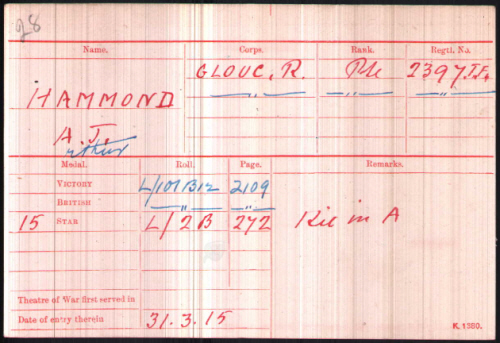 28
Name. Corps. Rank. Regtl. No.
HAMMOND GLOUC. R. Pte 2397 T.F.
A. J. —„— —„— —„—
Arthur
Medal. Roll. Page. Remarks.
VICTORY L/101B12 2109
BRITISH —„— —„—
15 STAR L/2B 272 Kil in A
Theatre of War first served in
Date of entry therein 31.3.15
K. 1380.